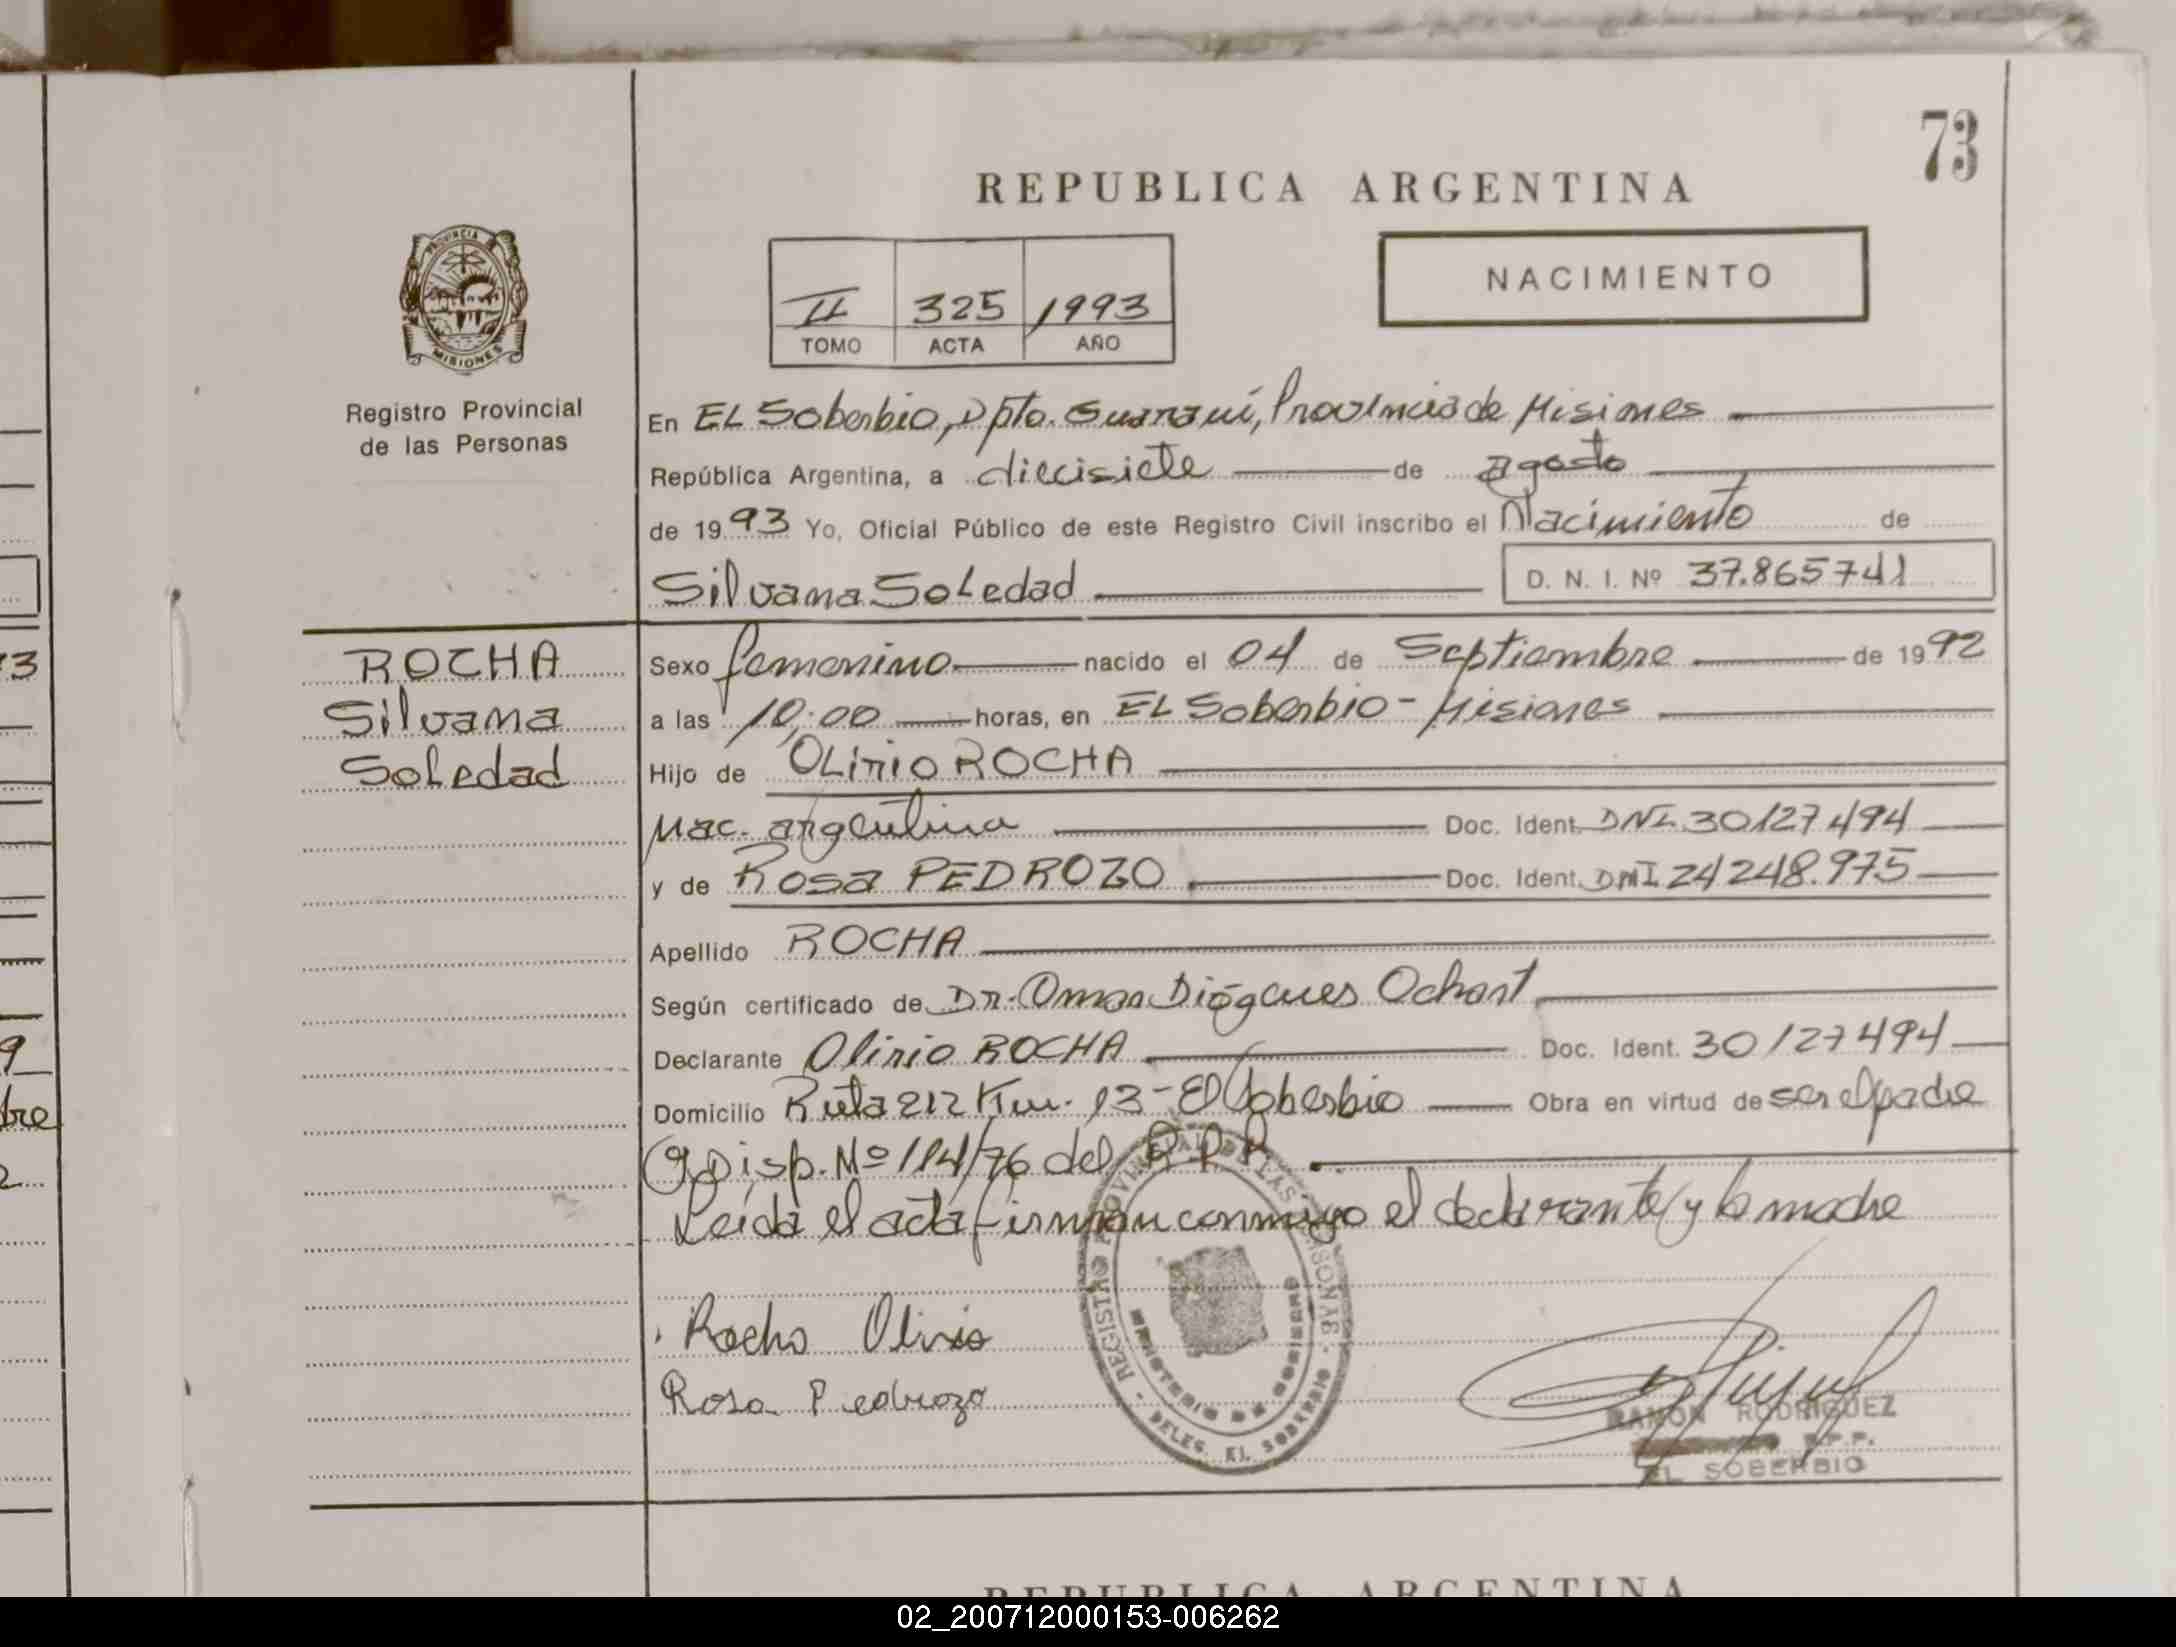 73
REPUBLICA ARGENTINA
PROVINCIA
MISIONES
Registro Provincial
de las Personas
NACIMIENTO
II 325 1993
TOMO ACTA AÑO
En EL Soberbio, Dpto. Guaraní, Provincia de Misiones
República Argentina, a diecisiete de agosto
de 1993 Yo, Oficial Público de este Registro Civil inscribo el Nacimiento de
Silvana Soledad D. N. I. Nº 37.865741
ROCHA
Silvana
Soledad
Sexo femenino nacido el 04 de Septiembre de 1992
a las 10:00 horas, en EL Soberbio - Misiones
Hijo de OLirio ROCHA
Nac. argentina Doc. Ident. DNI. 30127494
y de Rosa PEDROZO Doc. Ident. DNI 24248.975
Apellido ROCHA
Según certificado de Dr. Omar Diógenes Ochart
Declarante Olirio ROCHA Doc. Ident. 30127494
Domicilio Ruta 212 Km. 13 - El Soberbio Obra en virtud de ser el padre
Disp. Nº 114/76 del R.P.P.
Leida el acta firman conmigo el declarante y la madre
Rocha Olirio
Rosa Pedrozo
REGISTRO PROVINCIAL DE LAS PERSONAS
MINISTERIO DE GOBIERNO
DELEG. EL SOBERBIO
RAMON RODRIGUEZ
R.P.P.
EL SOBERBIO
REPUBLICA ARGENTINA
3
9
bre
2
02_200712000153-006262